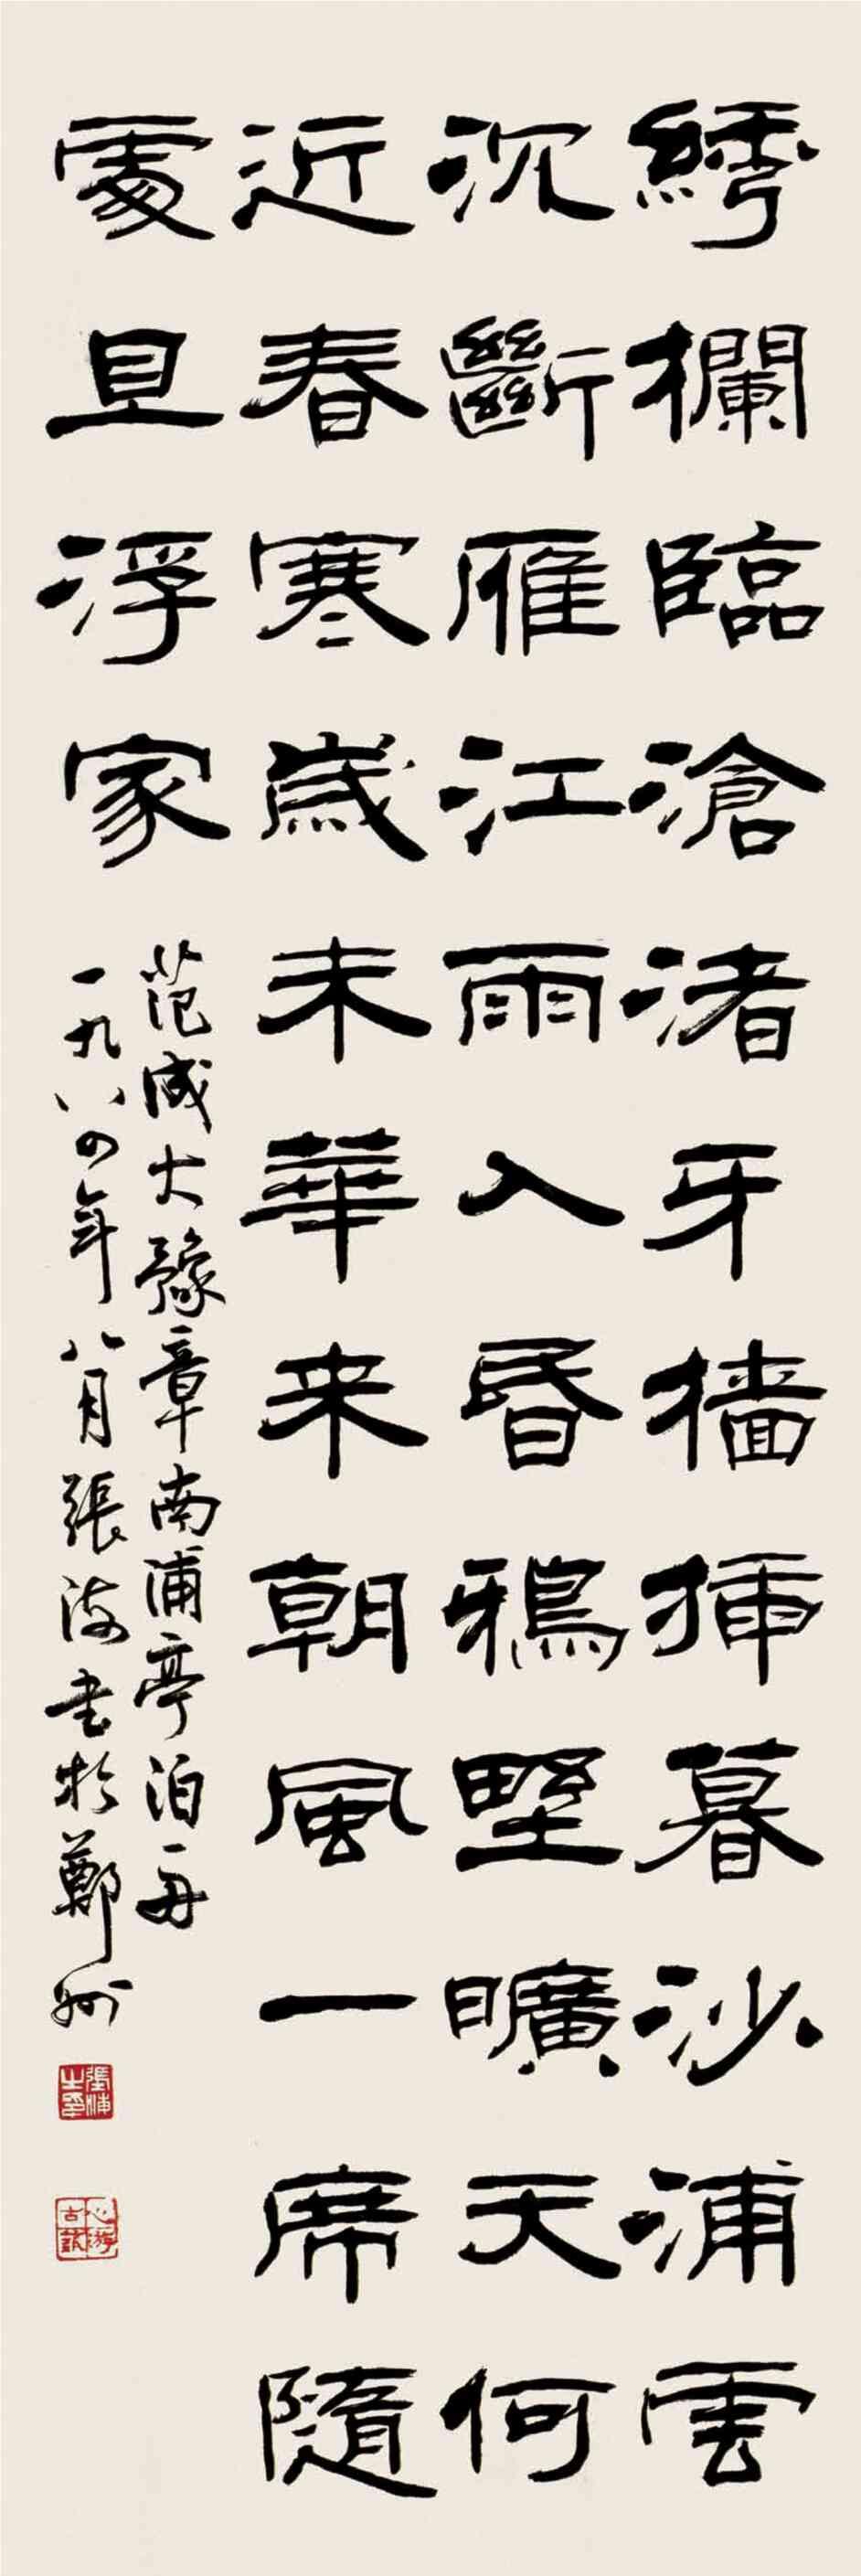 綉欄臨滄渚牙檣插暮沙浦雲
沉斷雁江雨入昏鴉野曠天何
近春寒歲未華来朝風一席隨
處且浮家
范成大豫章南浦亭泊舟
一九八四年八月張海书於鄭州
張海之印